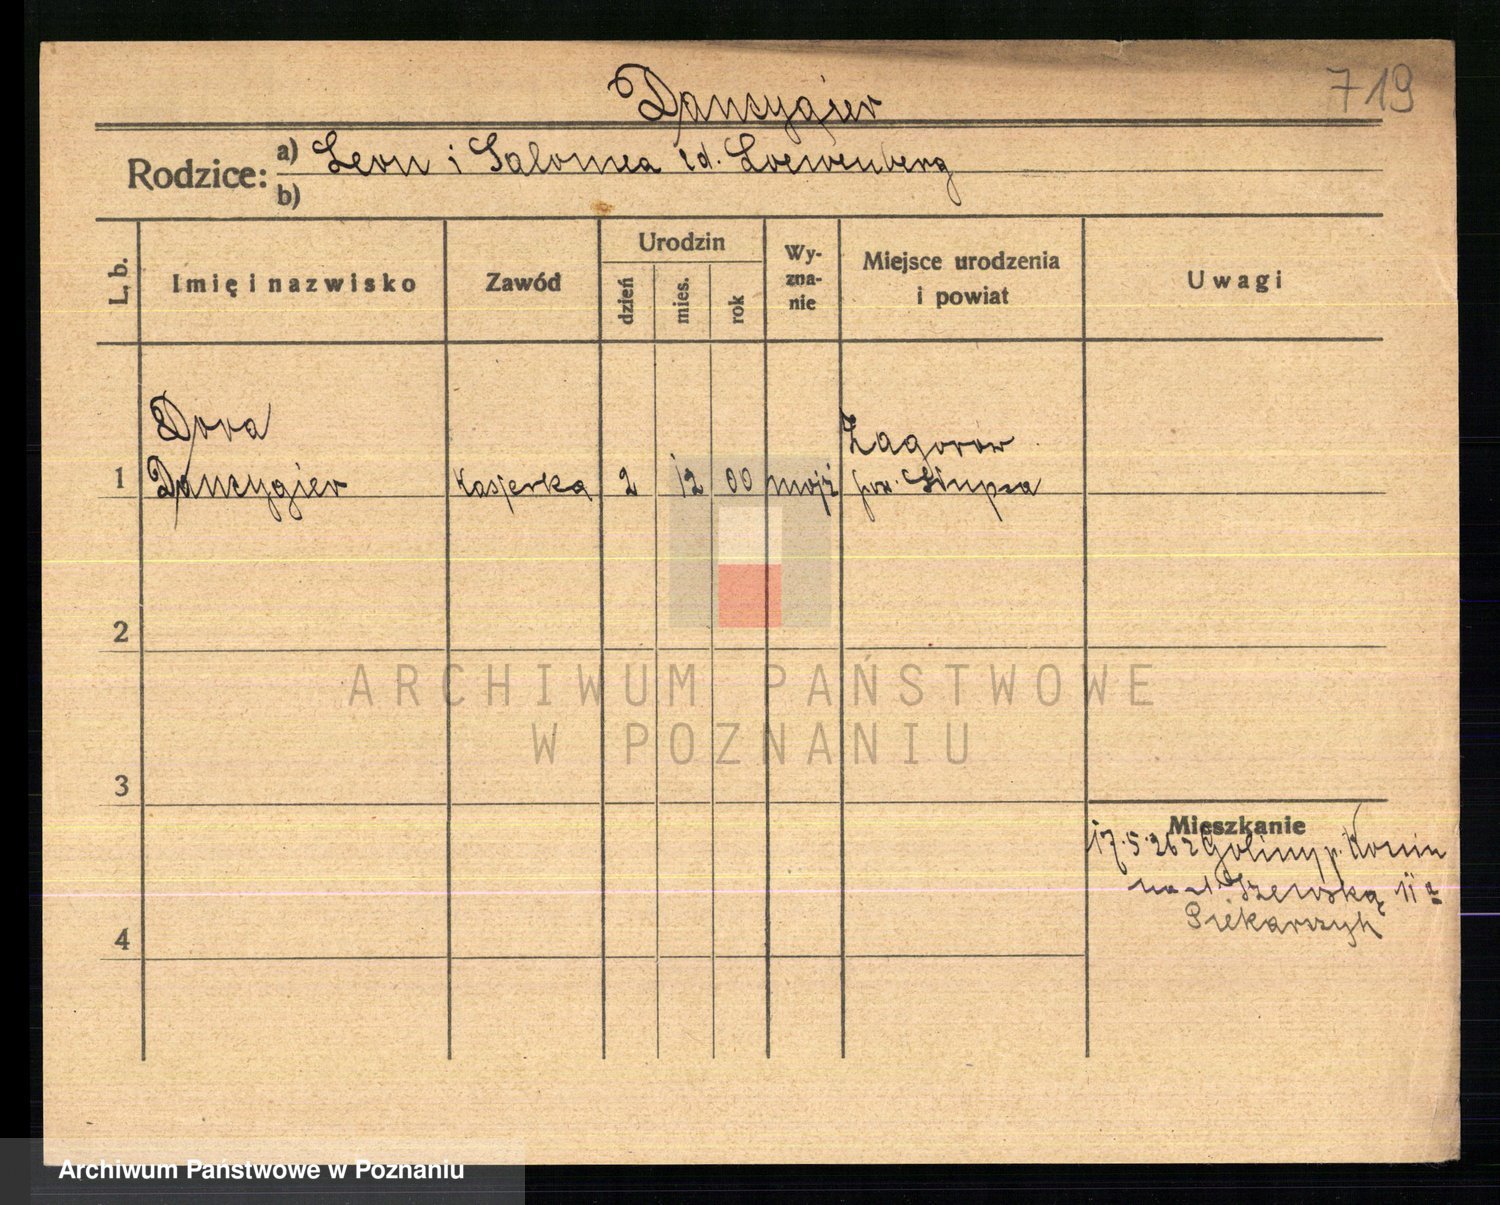 Dancygier
719
Rodzice:
a) Leon i Salomea zd. Loewenberg
b)
L. b.
Imię i nazwisko
Zawód
Urodzin
dzień
mies.
rok
Wy-
zna-
nie
Miejsce urodzenia
i powiat
Uwagi
Dora
Zagorów
1 Dancygier Kasjerka 2 12 00 mojż pow. Słupca
2
3
4
Mieszkanie
17.5.26 z Goliny p. Konin
na ul. Szewską 11a
Piekarczyk
ARCHIWUM PAŃSTWOWE
W POZNANIU
Archiwum Państwowe w Poznaniu